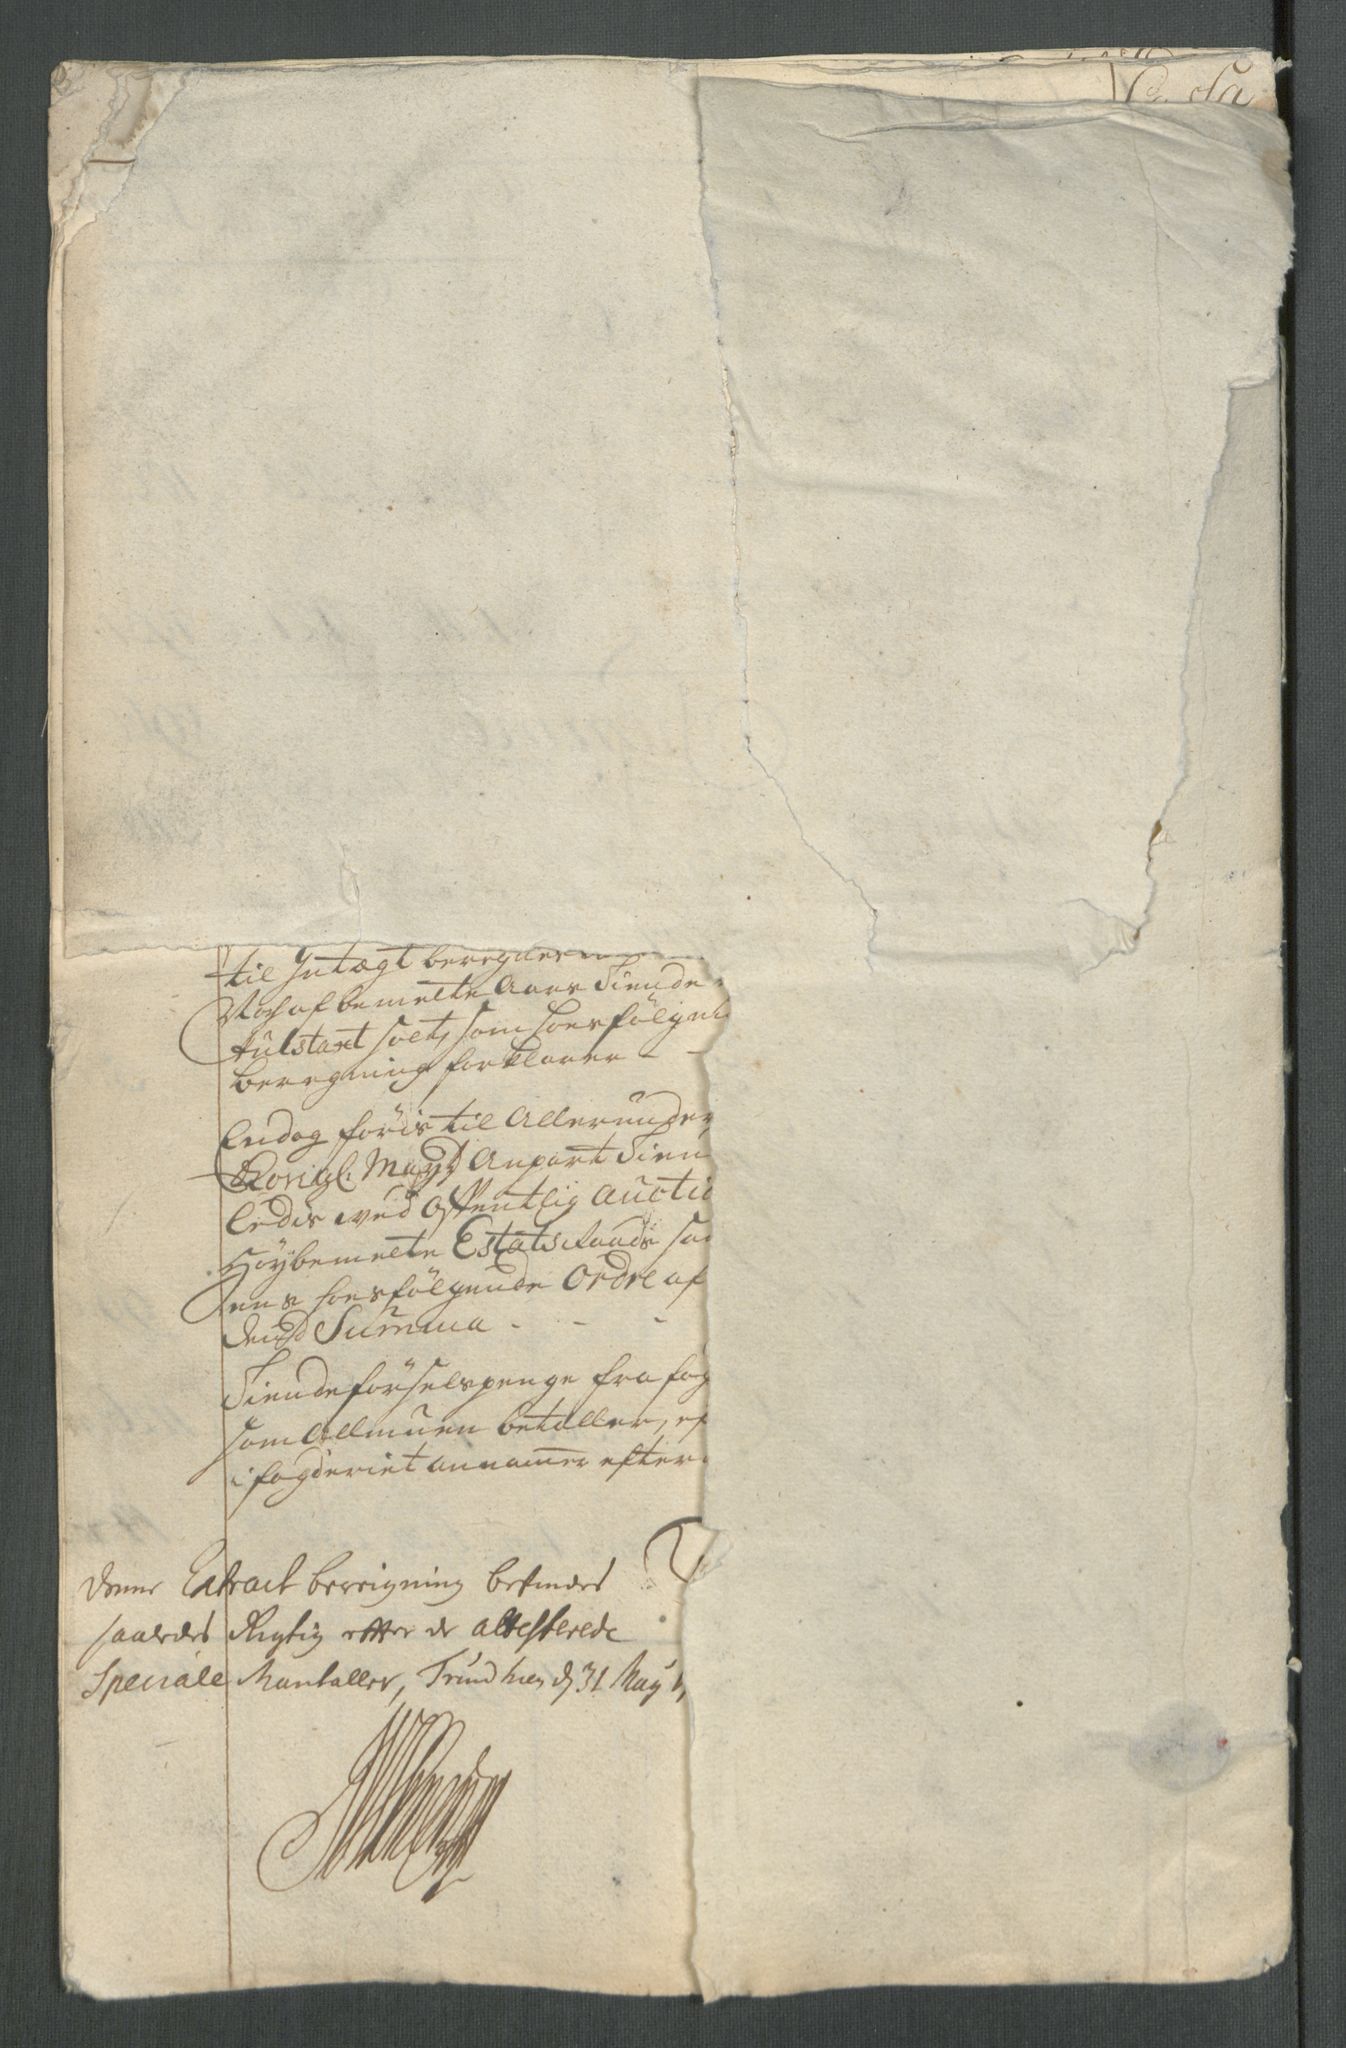 til Intægt beregnes
Noch af bemelte Aars Tiende
Fulstaxt solt, som hoesfølgen
beregning forklarer - -
Endog føris til Allerunder
Kongl: Mayts Anpart Tien
ledis ved Offentlig Auctio
Høybemelte Estats Raads sa
ens hoesfølgende Ordre af
Summa - - -
Tiende førselspenge fra fog
som Allmuen betaller, ef
i fogderiet annammer efter
Denne Extract bereigning befindes
saaledes Rigtig efter de attesterede
Speciale Mantaller, Trundhiem d 31 May 1